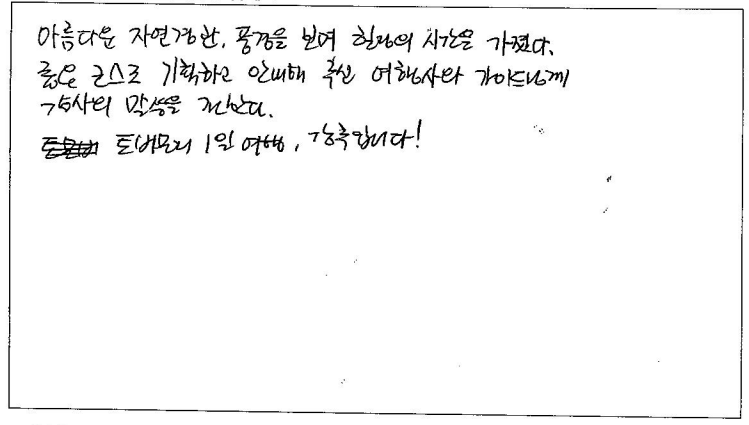 아름다운 자연경관, 풍경을 보며 힐링의 시간을 가졌다.
좋은 코스로 기획하고 안내해 주신 여행사와 가이드님께
감사의 말씀을 전한다.
토버모리 1일 여행, 강추입니다!